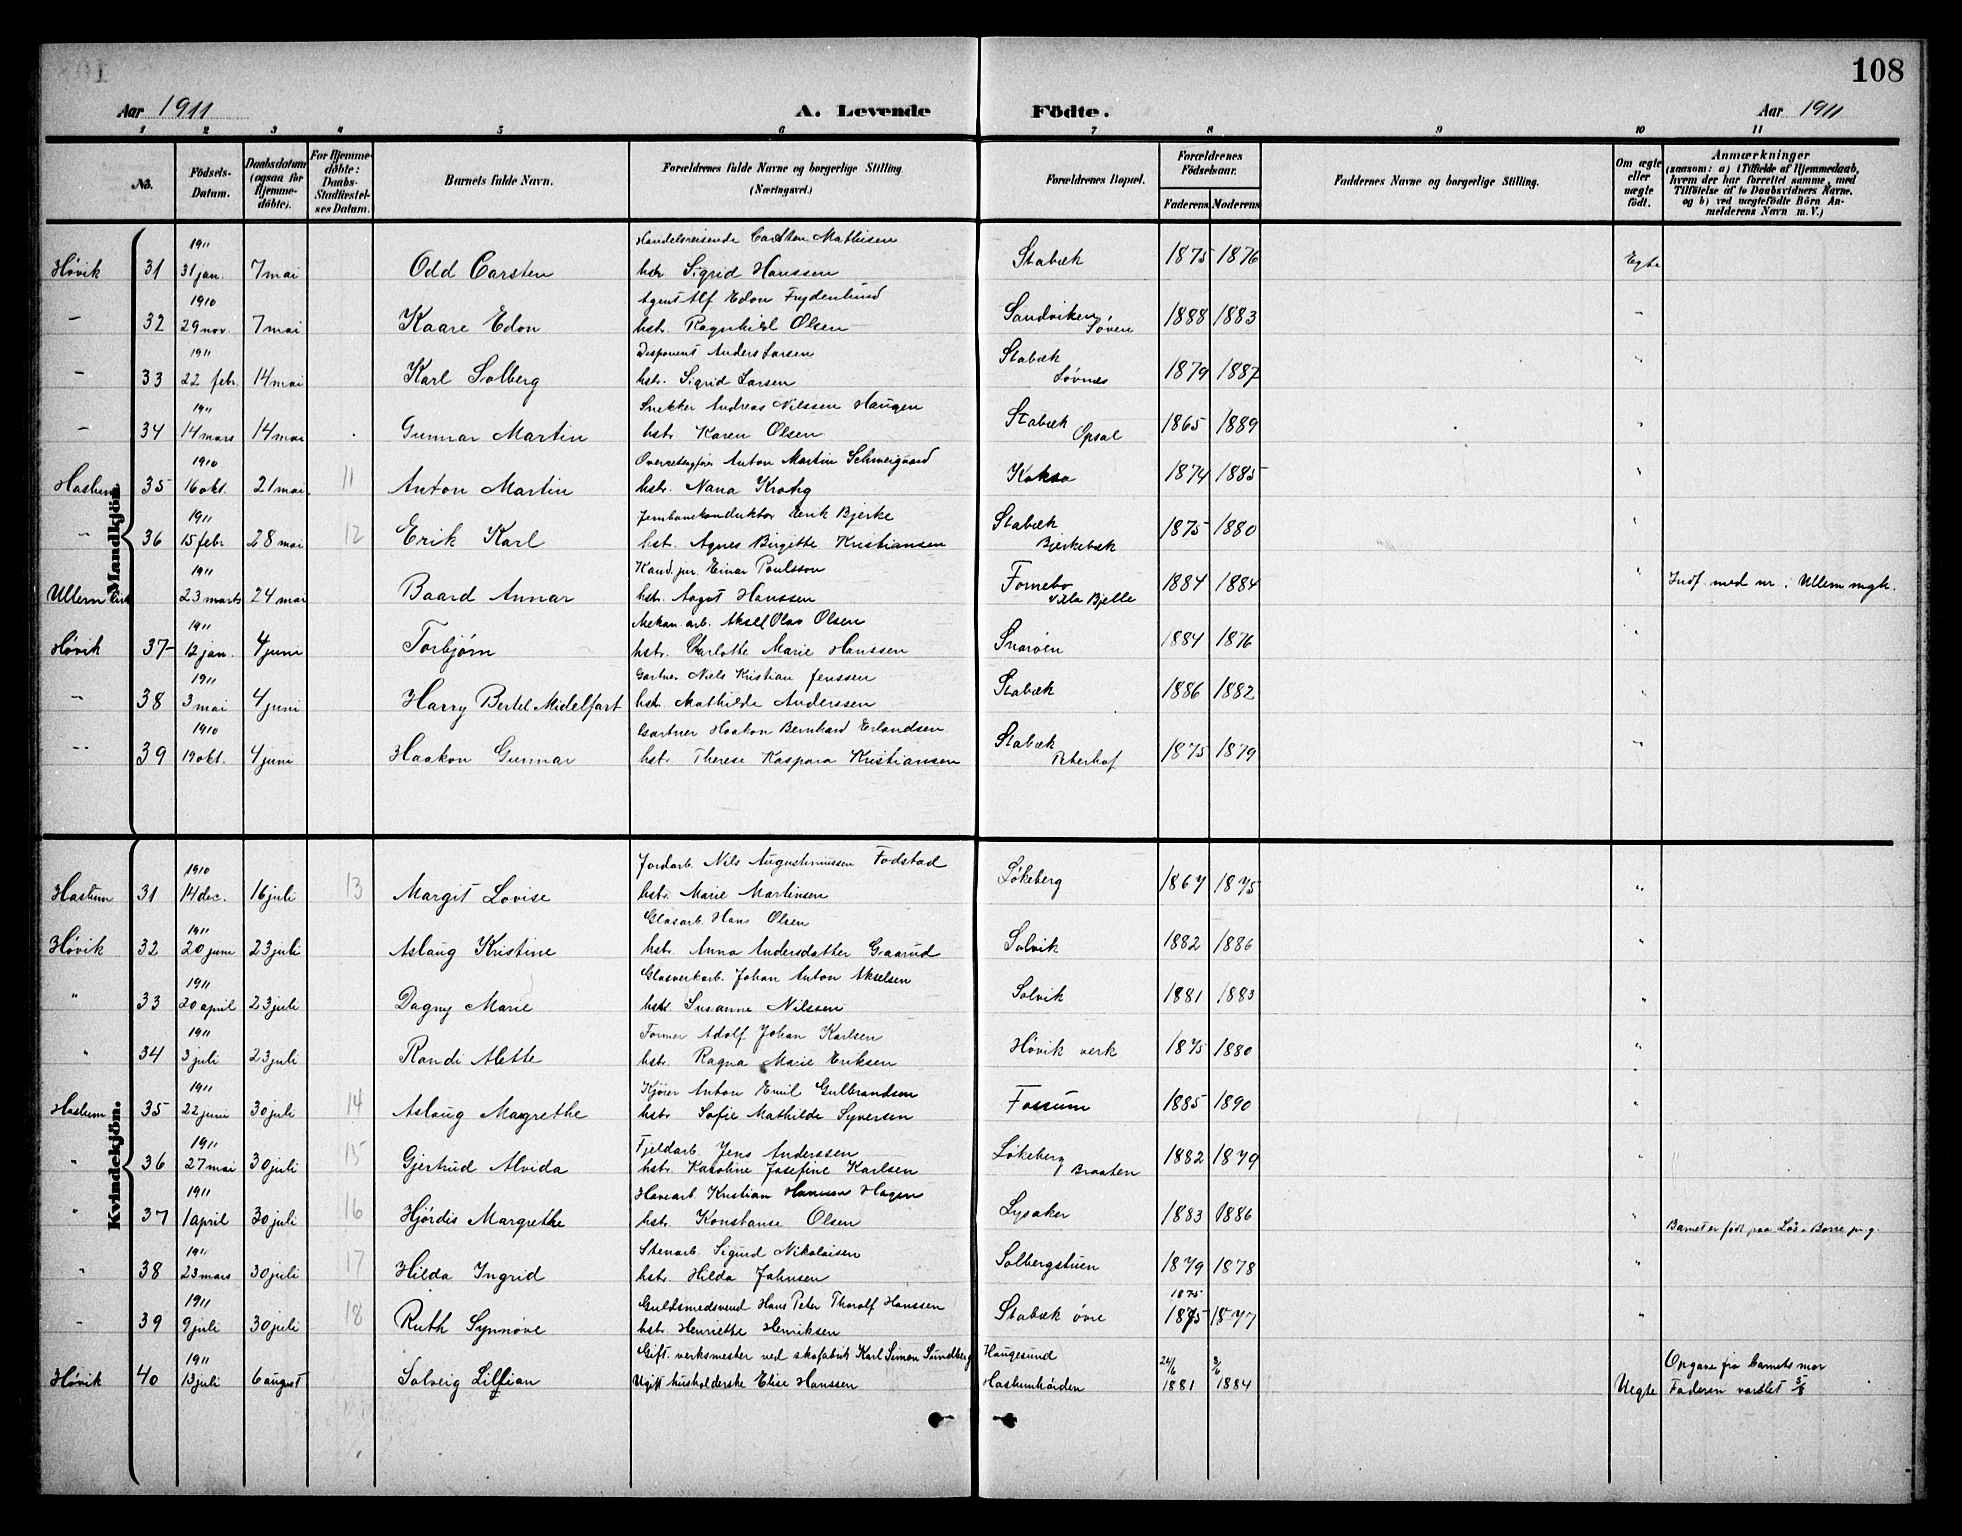 108
Aar 1911 A. Levende Födte. Aar 1911
1 2 3 4 5 6 7 8 9 10 11
No. Födsels-Datum. Daabsdatum (ogsaa for Hjemme-döbte). For Hjemme-döbte: Daabs-Stadfæstel-ses Datum. Barnets fulde Navn. Forældrenes fulde Navne og borgerlige Stilling (Næringsvei.) Forældrenes Bopæl. Forældrenes Födselsaar. Faderens Moderens Faddernes Navne og borgerlige Stilling. Om ægte eller uægte födt. Anmærkninger (saasom: a) i Tilfælde af Hjemmedaab, hvem der har forrettet samme, med Tilföielse af to Daabsvidners Navne. og b) ved uægtefödte Börn An-melderens Navn m. V.)
Mandkjön.
1911 Handelsreisende Carsten Mathisen
Høvik 31 31 jan. 7 mai Odd Carsten hstr. Sigrid Hanssen Stabæk 1875 1876 Egte
1910 Agent Alf Edon Frydenlund
– 32 29 nov. 7 mai Kaare Edon hstr. Ragnhild Olsen Sandviken Løven 1888 1883 –
1911 Disponent Anders Larsen
– 33 22 febr. 14 mai Karl Solberg hstr. Sigrid Larsen Stabæk Løvnes 1879 1887 "
1911 Snekker Andreas Nilssen Haugen
– 34 14 mars 14 mai Gunnar Martin hstr. Karen Olsen Stabæk Opsal 1865 1889 "
1910 Overretssagfører Anton Martin Schweigaard
Haslum 35 16 okt. 21 mai 11 Anton Martin hstr. Nana Krohg 1874 1885 "
1911 Jernbanekonduktør Erik Bjerke
" 36 15 febr. 28 mai 12 Erik Karl hstr. Agnes Birgitte Kristiansen Stabæk Bjerkebæk 1875 1880 "
1911 Kand. jur. Einar Paulsson
Ullern kirke 23 marts 24 mai Baard Annar hstr. Aagot Hanssen Fornebo Villa Bjelle 1884 1884 " Indf. med nr. Ullern mgk.
1911 Mekan. arb. Aksel Olav Olsen
Høvik 37 12 jan. 4 juni Torbjørn hstr. Charlotte Marie Hanssen Snarøen 1884 1876 "
1911 Gartner Niels Kristian Jenssen
" 38 3 mai 4 juni Harry Bertel Midelfart hstr. Mathilde Anderssen Stabæk 1886 1882 "
1910 Gartner Haakon Bernhard Erlandsen
" 39 19 okt. 4 juni Haakon Gunnar hstr. Therese Kaspara Kristiansen Stabæk Peterhof 1875 1879 "
Kvindekjön.
1910 Jordarb. Nils Augustinussen Fodstad
Haslum 31 14 dec. 16 juli 13 Margit Lovise hstr. Marie Martinsen Løkeberg 1867 1875 "
1911 Glasarb. Hans Olsen
Høvik 32 20 juni 23 juli Aslaug Kristine hstr. Anna Andersdatter Gaarud Solvik 1882 1886 "
1911 Glasverkarb. Johan Anton Akselsen
" 33 20 april 23 juli Dagny Marie hstr. Susanne Nilssen Solvik 1881 1883 "
1911 Former Adolf Johan Karlsen
" 34 3 juli 23 juli Randi Alette hstr. Ragna Marie Eriksen Høvik verk 1875 1880 "
1911 Kjører Anton Emil Gulbrandsen
Haslum 35 22 juni 30 juli 14 Aslaug Magrethe hstr. Sofie Mathilde Syversen Fossum 1885 1890 "
1911 Fjeldarb. Jens Anderssen
" 36 27 mai 30 juli 15 Gjertrud Alvida hstr. Karoline Josefine Karlsen Løkeberg Braaten 1882 1879
1911 Havearb. Kristian Hanssen Hagen
" 37 1 april 30 juli 16 Hjørdis Margrethe hstr. Konstanse Olsen Lysaker 1883 1886 " Barnet er født paa Lös i Borre prg.
1911 Stenarb. Sigurd Nikolaisen
" 38 23 mars 30 juli 17 Hilda Ingrid hstr. Hilda Johnsen Solbergstuen 1879 1878 "
1911 Guldsmedsvend Hans Peter Thoralf Hanssen 1875
" 39 9 juli 30 juli 18 Ruth Synnøve hstr. Henriette Henriksen Stabæk øvre 1875 1877 "
1911 Gift. verksmester ved skofabrik Karl Simon Sundberg Haugesund 24/6 3/6 Opgave fra barnets mor
Høvik 40 13 juli 6 august Solveig Lillian Ugift husholderske Elise Hanssen Haslumhörden 1881 1884 Uegte Faderen varslet 5/8